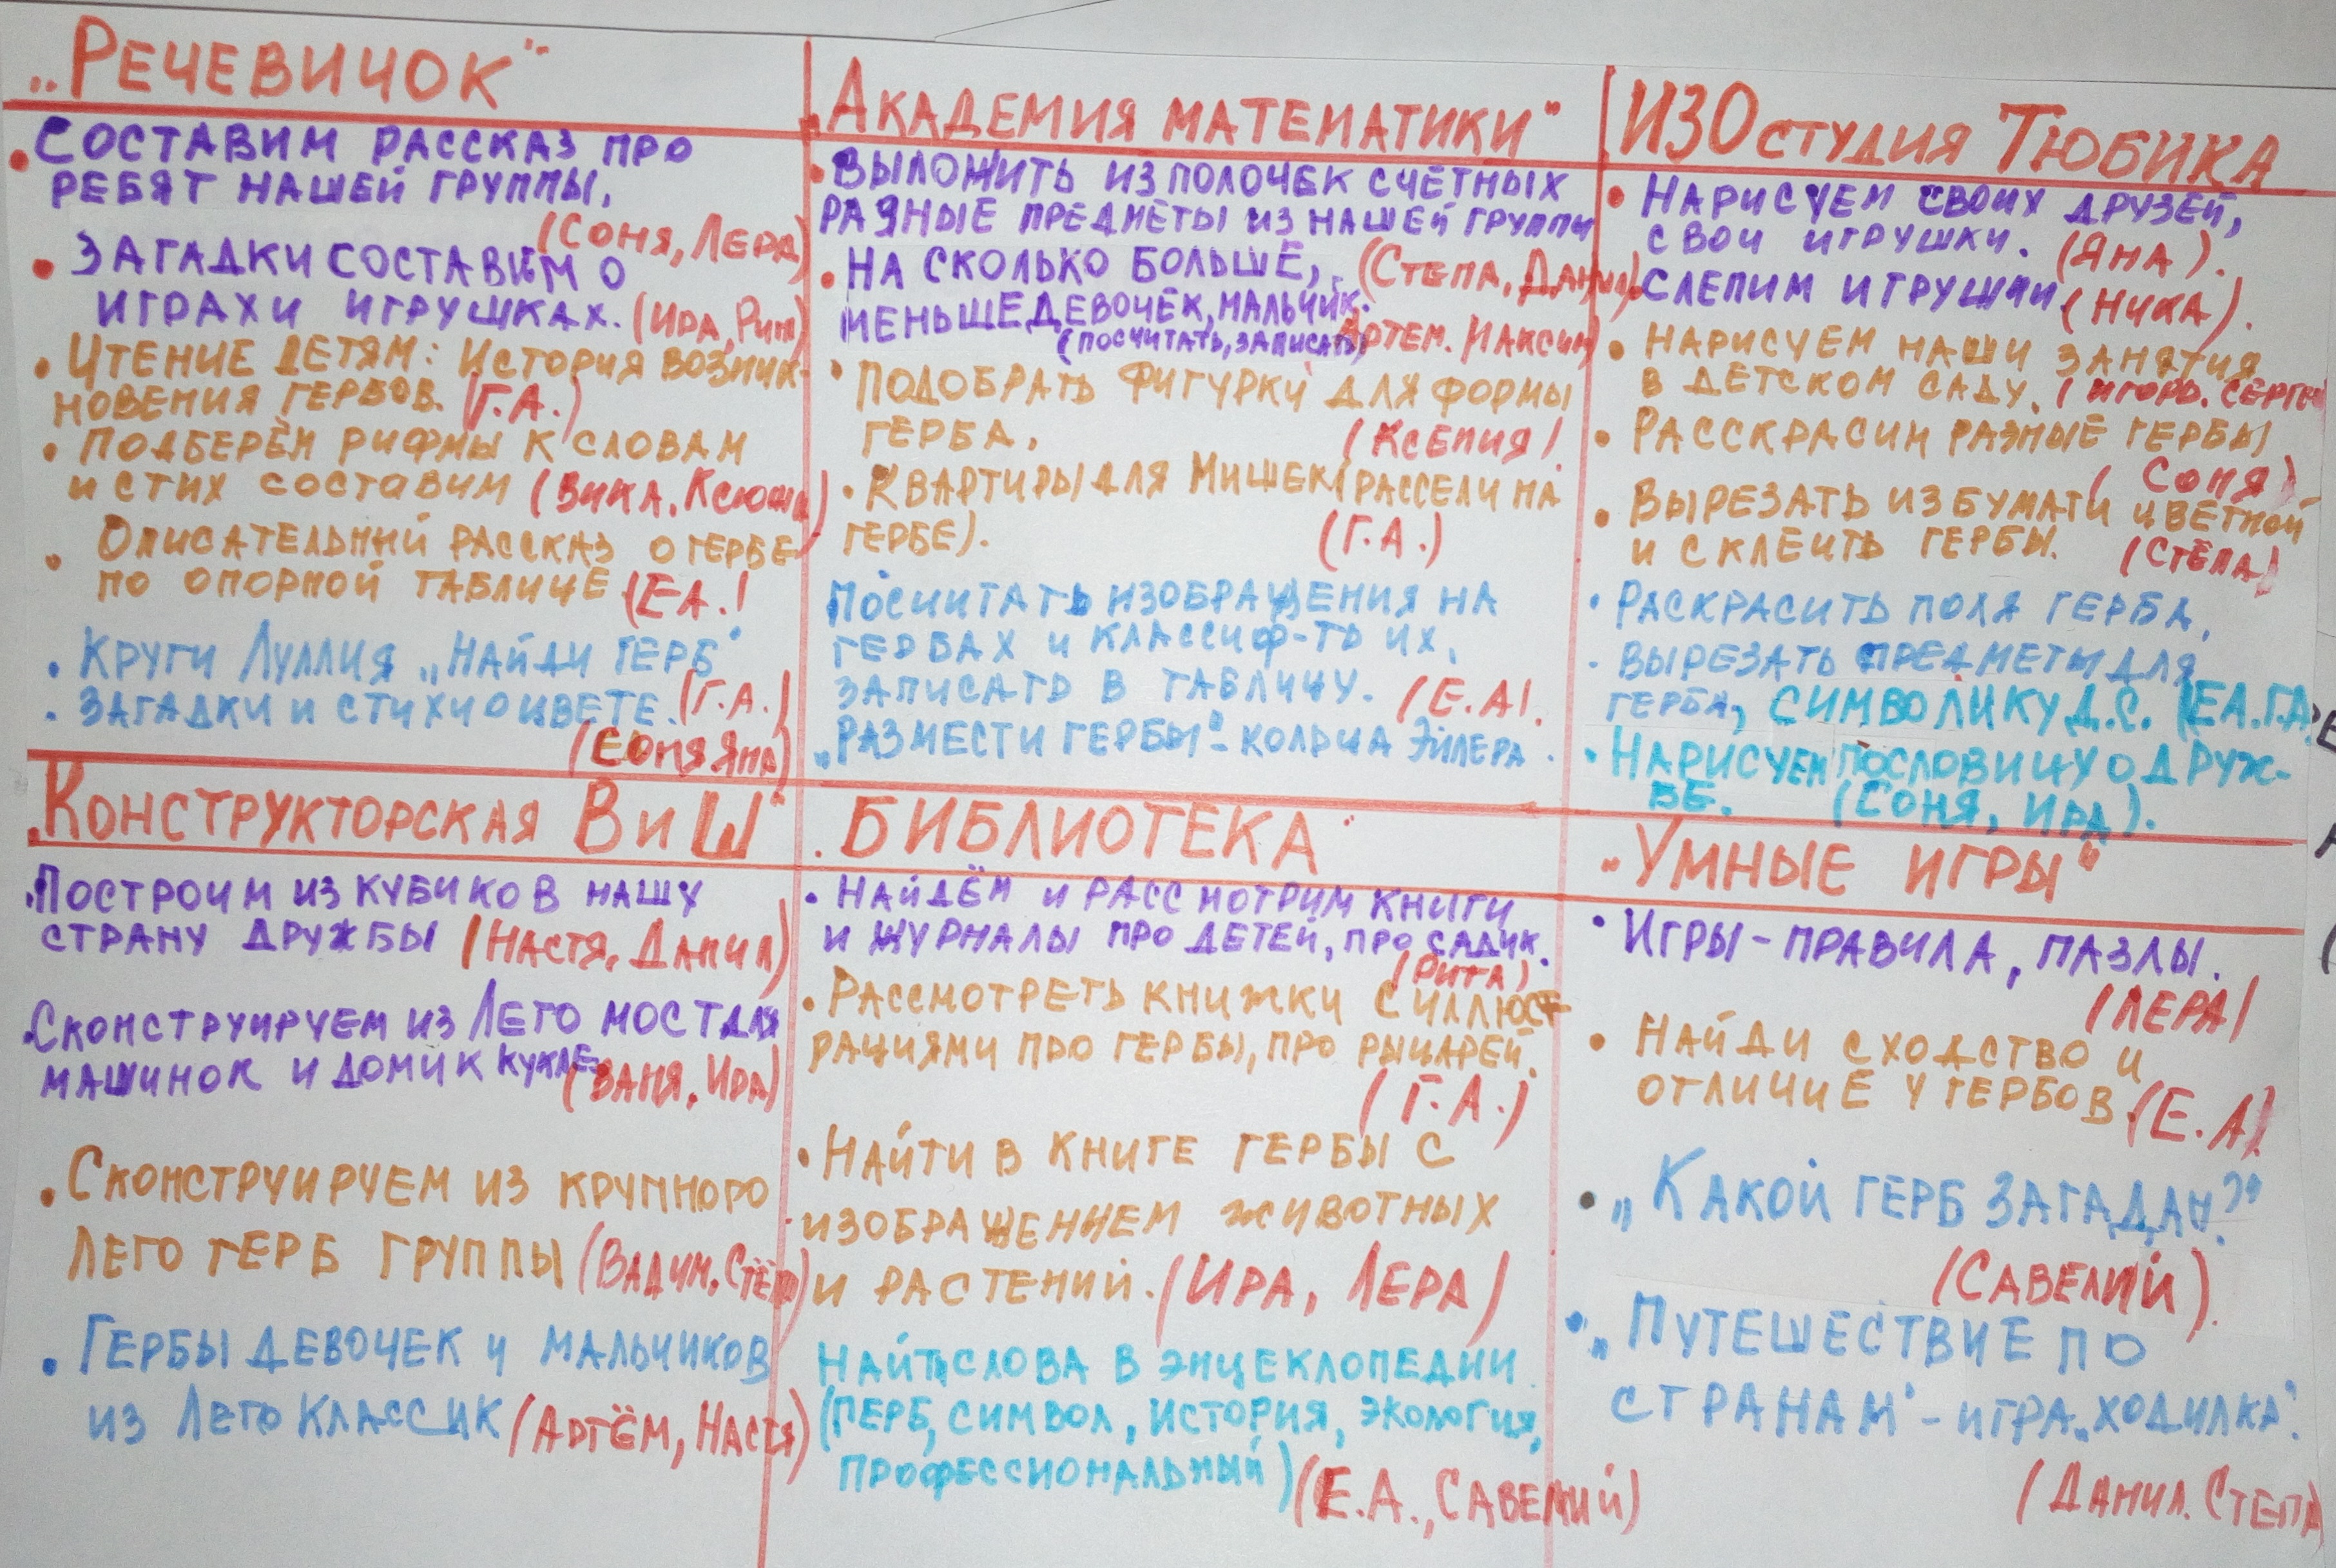 „Речевичок"
• Составим рассказ про
ребят нашей группы,
(Соня, Лера)
• Загадки составим о
играх и игрушках. (Ира, Рит)
• Чтение детям: История возник-
новения гербов. (Г.А.)
• Подберём рифмы к словам
и стих составим (Вика, Ксюша)
• Описательный рассказ о гербе
по опорной таблице (Е.А.)
• Круги Луллия „Найди герб"
• Загадки и стихи о цвете. (Г.А.)
(Соня Яна)
„Академия математики"
• Выложить из полочек счётных
разные предметы из нашей группы
• На сколько больше, (Степа, Данил)
меньше девочек, мальчик.
(посчитать, записать) Артем. Максим)
• Подобрать фигурки для формы
герба. (Ксения)
• Квартиры для Мишек (рассели на
гербе). (Г.А.)
Посчитать изображения на
гербах и классиф-ть их,
записать в таблицу. (Е.А).
„Размести гербы" - кольца Эйлера.
ИЗОстудия Тюбика
• Нарисуем своих друзей,
свои игрушки. (Яна).
Слепим игрушки (Ника).
• Нарисуем наши занятия
в детском саду. (Игорь. Сергей
• Расскрасим разные гербы
(Соня)
• Вырезать из бумаги цветной
и склеить гербы. (Стёпа)
• Раскрасить поля герба,
- вырезать предметы для
герба, символику Д.С. (Е.А. Г.А.
• Нарисуем пословицу о друж-
бе. (Соня, Ира).
„Конструкторская ВиШ"
• Построим из кубиков нашу
страну дружбы (Настя, Данил)
• Сконструируем из Лего мост для
машинок и домик кукле (Ваня, Ира)
• Сконструируем из крупного
Лего герб группы (Вадим, Стёп)
• Гербы девочек и мальчиков
из Лего Классик (Артём, Настя)
„БИБЛИОТЕКА"
• Найдём и рассмотрим книги
и журналы про детей, про садик.
(Рита)
• Рассмотреть книжки с иллюст-
рациями про гербы, про рыцарей.
(Г.А.)
• Найти в книге гербы с
изображением животных
и растений. (Ира, Лера)
Найти слова в энцеклопедии
(герб, символ, история, экология,
профессиональный) (Е.А., Савелий)
„Умные игры"
• Игры-правила, пазлы.
(Лера)
• Найди сходство и
отличие у гербов (Е.А)
• „Какой герб загадан?"
(Савелий).
• „Путешествие по
странам" - игра „ходилка".
(Данил. Степа)